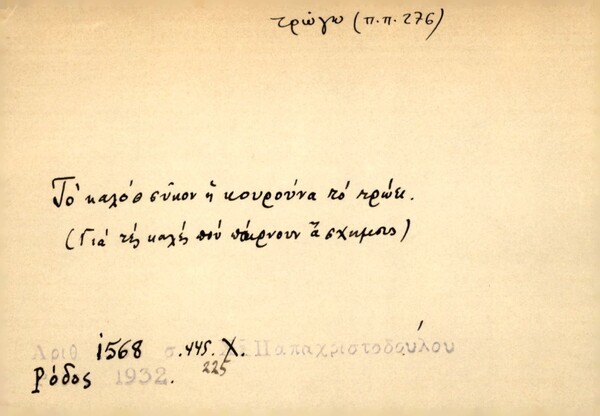 τρώγω (π.π. 276)
Τὸ καλὸ σῦκον ἡ κουρούνα τὸ τρώει.
(Γιὰ τὲς καλὲς ποὺ παίρνουν ἄσχημους)
Ἀριθ 1568 σ. 445. Χ. Παπαχριστοδούλου
225
Ρόδος 1932.